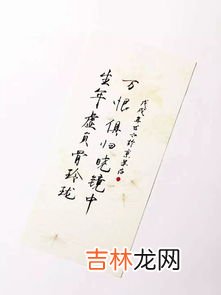 生年虚负骨玲珑
万恨俱归晓镜中
戊戌年
吉林龙网